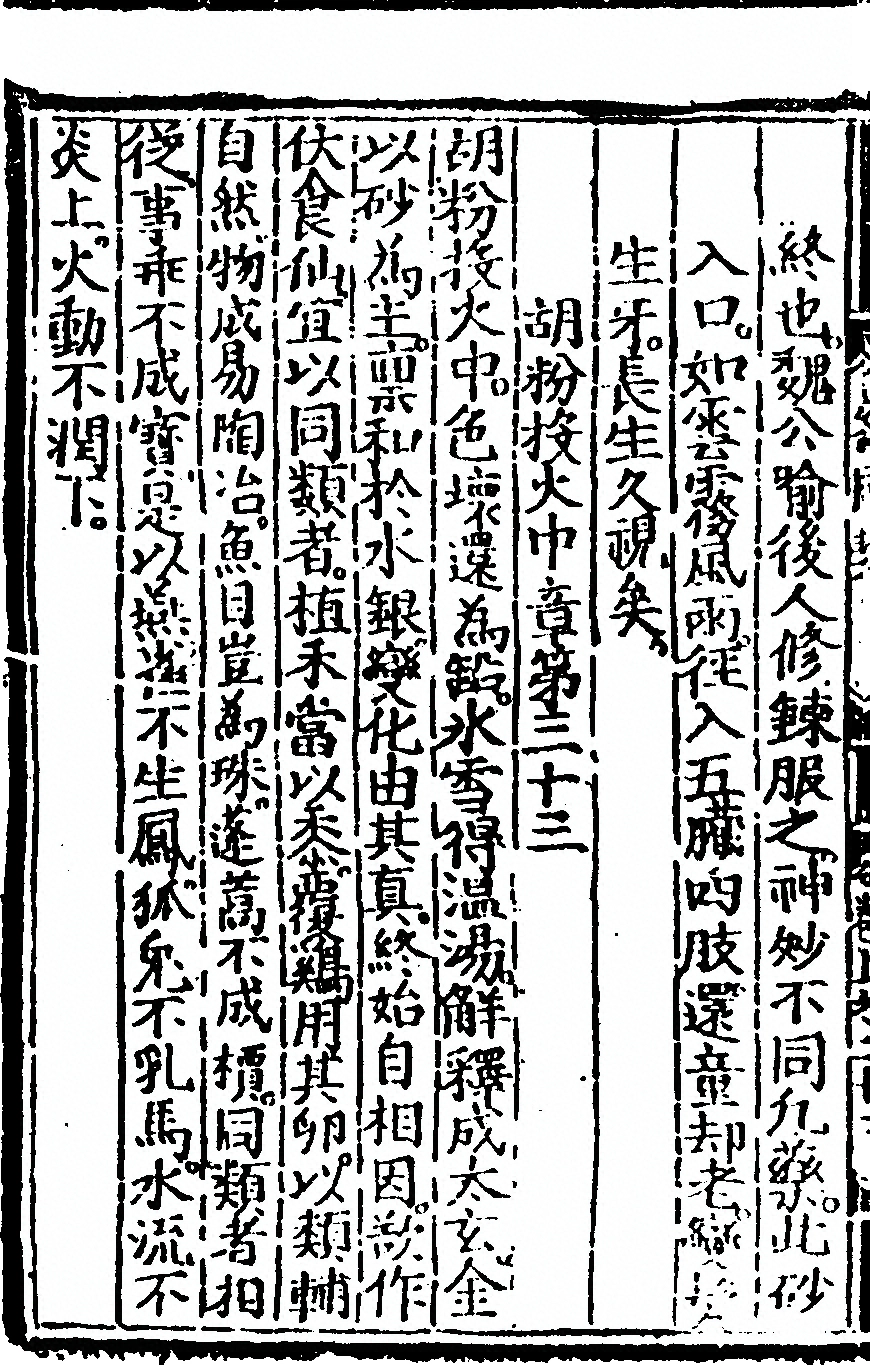 終也。魏公喻後人修鍊服之。神妙不同凡藥。此砂
入口。如雲霧風雨。徑入五臟四肢。還童却老。變
生牙。長生久視矣。
胡粉投火中章第三十三
胡粉投火中。色壞還為鉛。氷雪得温湯。解釋成太玄。金
以砂為主。禀和於水銀。變化由其真。終始自相因。欲作
伏食仙。宜以同類者。植禾當以黍。覆鷄用其卵。以類輔
自然。物成易陶冶。魚目豈為珠。蓬蒿不成檟。同類者相
從。事乖不成寳。是以燕雀不生鳳。狐兔不乳馬。水流不
炎上。火動不潤下。